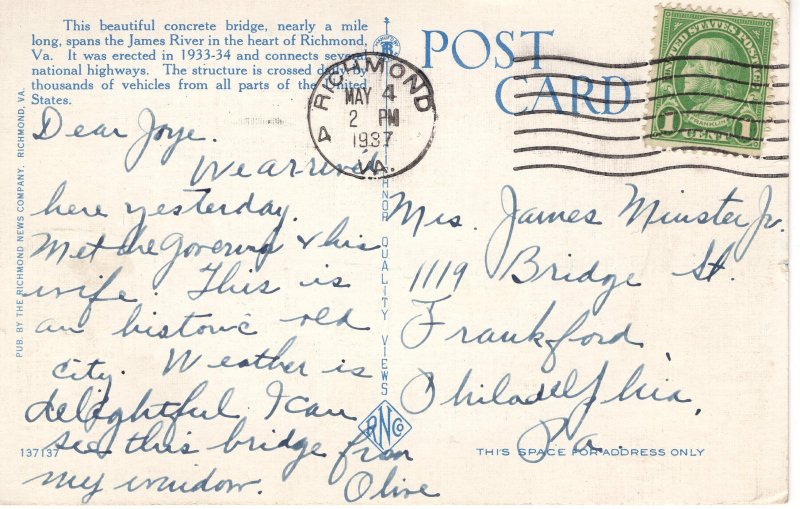 This beautiful concrete bridge, nearly a mile
long, spans the James River in the heart of Richmond,
Va. It was erected in 1933-34 and connects several
national highways. The structure is crossed daily by
thousands of vehicles from all parts of the United
States.
Dear Joye.
We arrived
here yesterday.
Met the Governor & his
wife. This is
an historic old
city. Weather is
delightful. I can
see this bridge from
my window. Olive
PUB. BY THE RICHMOND NEWS COMPANY, RICHMOND, VA.
137137
QUALITY VIEWS
RNCo
POST
CARD
RICHMOND
MAY 4
2 PM
1937
VA.
UNITED STATES POSTAGE
FRANKLIN
1 CENT 1
Mrs. James Minster Jr.
1119 Bridge St.
Frankford
Philadelphia,
Pa.
THIS SPACE FOR ADDRESS ONLY